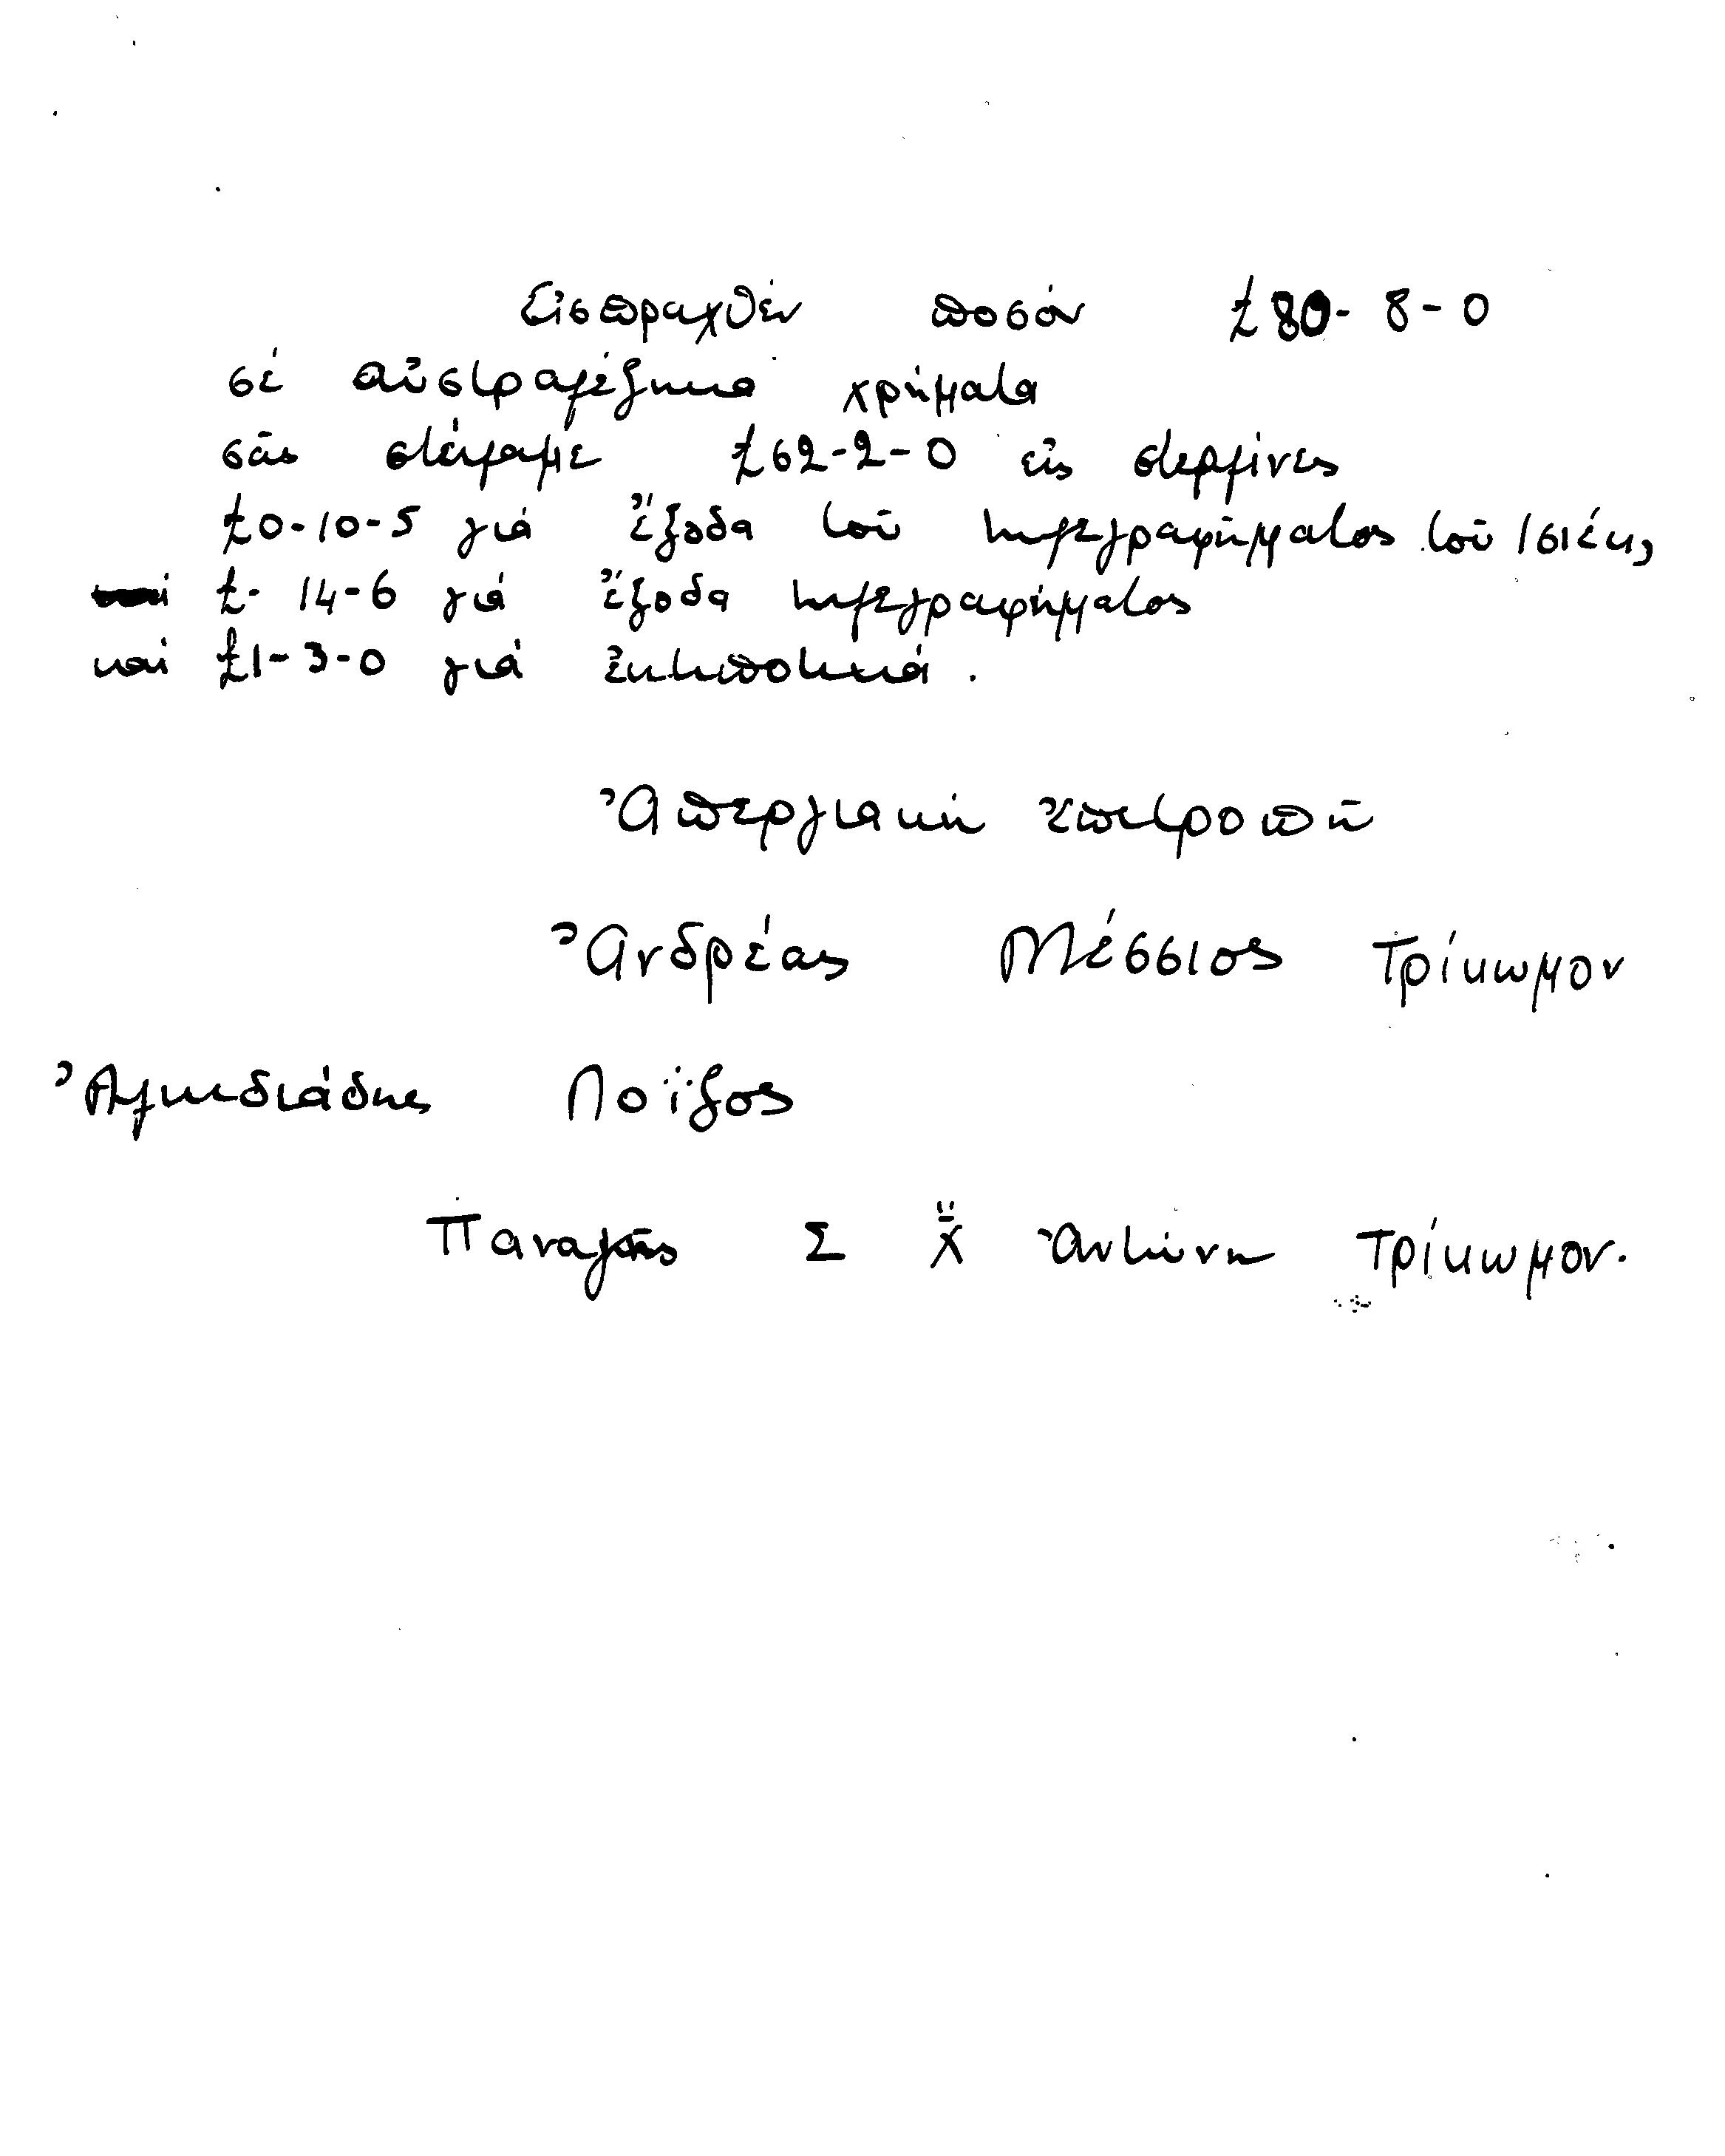 Εἰσπραχθέν ποσόν £80-8-0
σέ αὐστραλέζικα χρήματα
σᾶς στέλλαμε £62-2-0 εἰς στερλίνες
£0-10-5 γιά ἔξοδα τοῦ τηλεγραφήματος τοῦ Ισιέκ,
καί £- 14-6 γιά ἔξοδα τηλεγραφήματος
καί £1-3-0 γιά ἐκτυποτικά.
Ἀπεργιακή ἐπιτροπή
Ἀνδρέας Μέσσιος Τρίκωμον
Ἀλκιδιάδης Λοΐζος
Παναγῆς Σ Χ̈ Ἀντώνη Τρίκωμον.